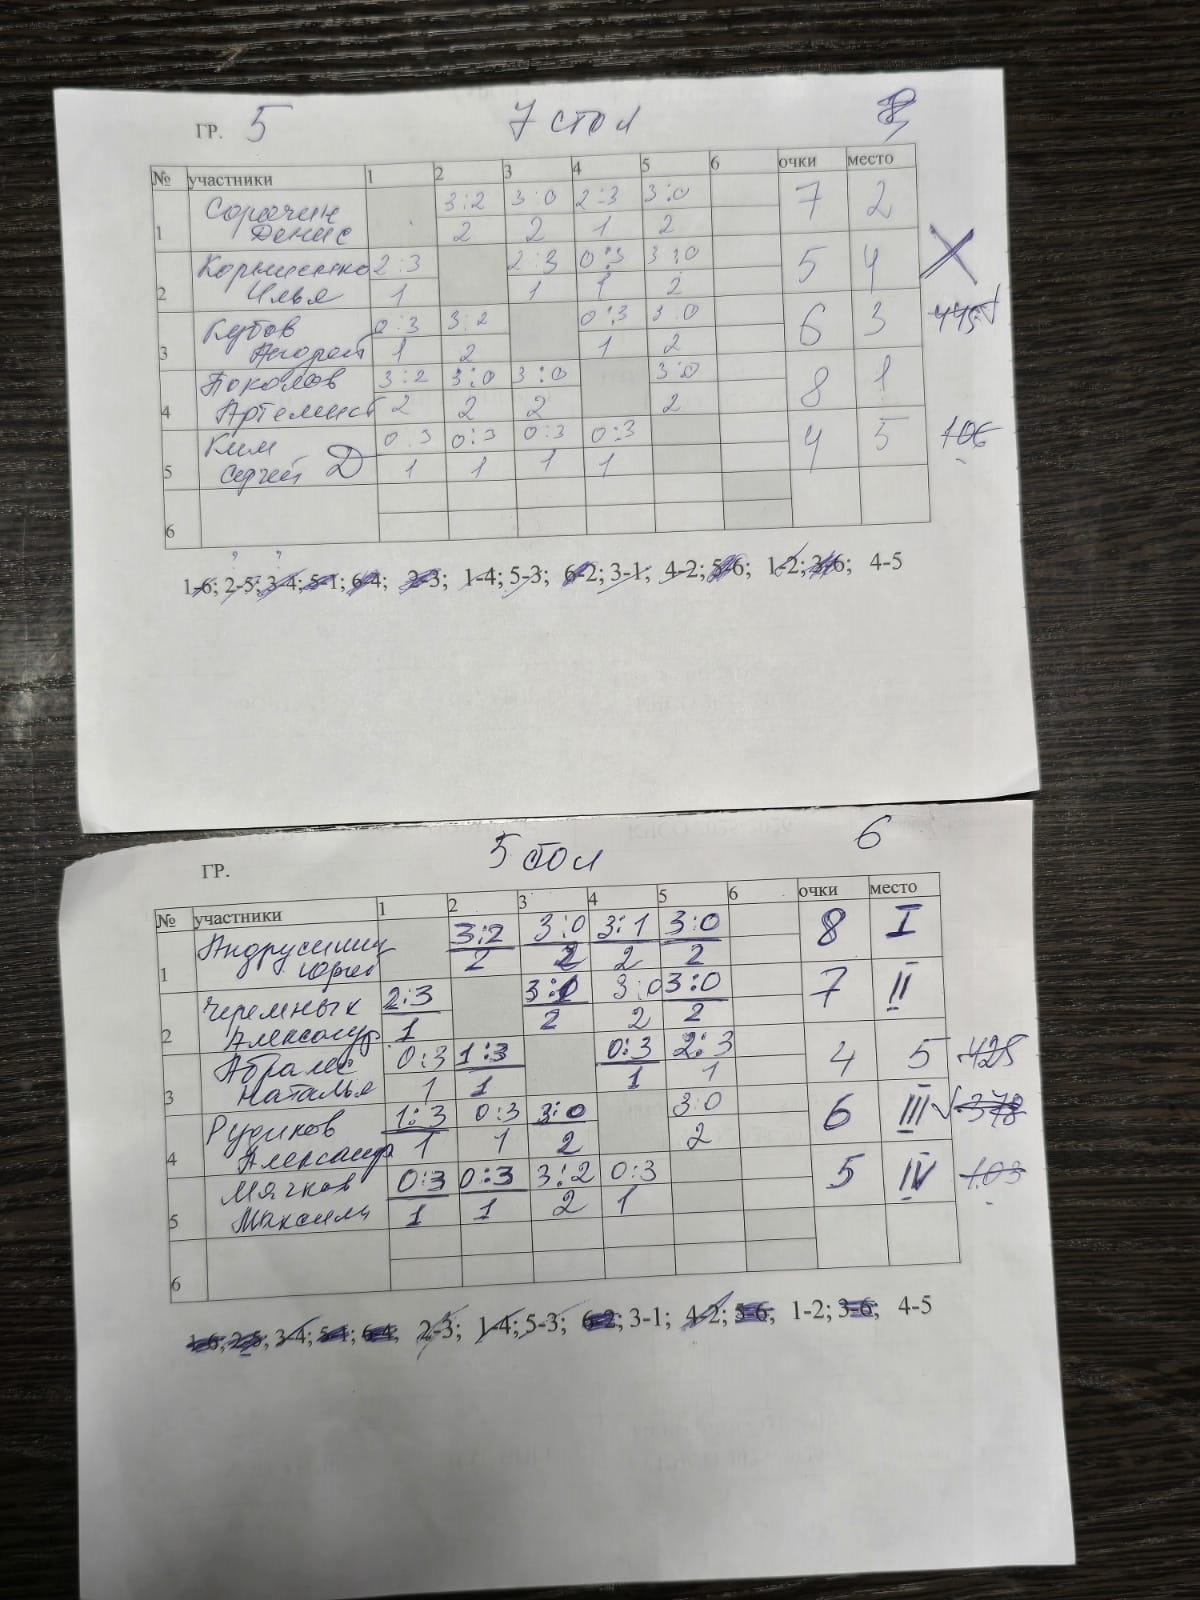 ГР. 5 7 стол
№ участники 1 2 3 4 5 6 очки место
1 Сорочин Денис 3:2 3:0 2:3 3:0 7 2
2 2 1 2
2 Корниенко Илья 2:3 2:3 0:3 3:0 5 4
1 1 1 2
3 Кубов Андрей 0:3 3:2 0:3 3:0 6 3
1 2 1 2
4 Артемий 3:2 3:0 3:0 3:0 8 1
2 2 2 2
5 Ким Сергей Д 0:3 0:3 0:3 0:3 4 5 106
1 1 1 1
6
1-6; 2-5; 3-4; 5-1; 6-4; 2-3; 1-4; 5-3; 6-2; 3-1; 4-2; 5-6; 1-2; 3-6; 4-5
ГР. 5 стол 6
№ участники 1 2 3 4 5 6 очки место
1 Юрий 3:2 3:0 3:1 3:0 8 I
2 2 2 2
2 Черемных Александр 2:3 3:1 3:0 3:0 7 II
1 2 2 2
3 Наталья 0:3 1:3 0:3 2:3 4 5 425
1 1 1 1
4 Рудиков Александр 1:3 0:3 3:0 3:0 6 III 378
1 1 2 2
5 Мячков Максим 0:3 0:3 3:2 0:3 5 IV 103
1 1 2 1
6
1-6; 2-5; 3-4; 5-1; 6-4; 2-3; 1-4; 5-3; 6-2; 3-1; 4-2; 5-6; 1-2; 3-6; 4-5